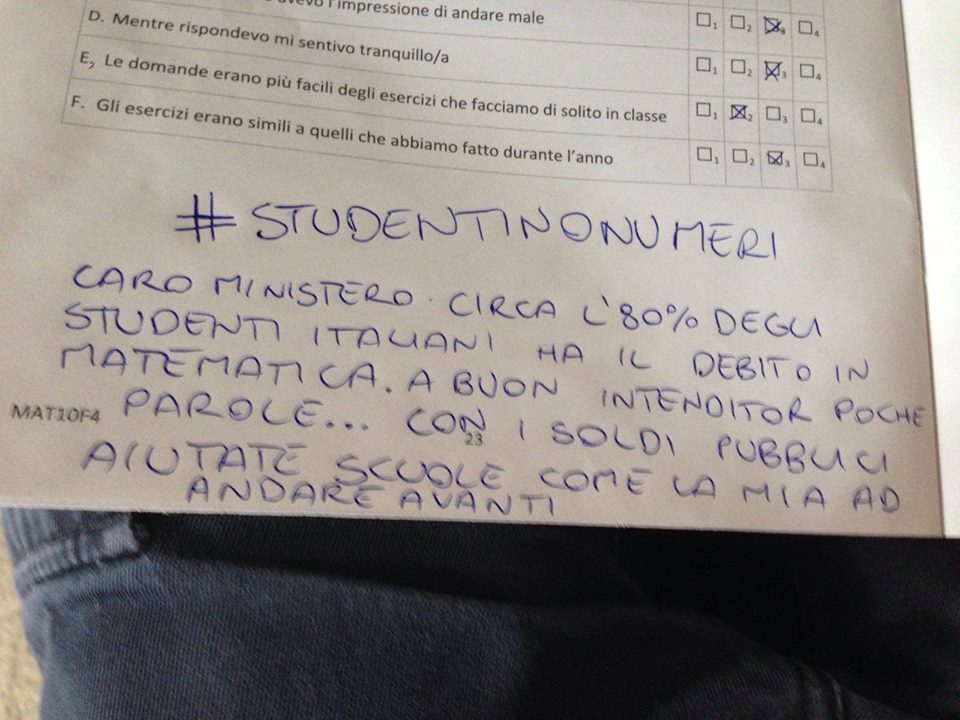 l'impressione di andare male □1 □2 ☒3 □4
D. Mentre rispondevo mi sentivo tranquillo/a □1 □2 ☒3 □4
E, Le domande erano più facili degli esercizi che facciamo di solito in classe □1 ☒2 □3 □4
F. Gli esercizi erano simili a quelli che abbiamo fatto durante l'anno □1 □2 ☒3 □4
#STUDENTINONUMERI
CARO MINISTERO. CIRCA L'80% DEGLI
STUDENTI ITALIANI HA IL DEBITO IN
MATEMATICA. A BUON INTENDITOR POCHE
PAROLE... CON I SOLDI PUBBLICI
AIUTATE SCUOLE COME LA MIA AD
ANDARE AVANTI
MAT10F4
23